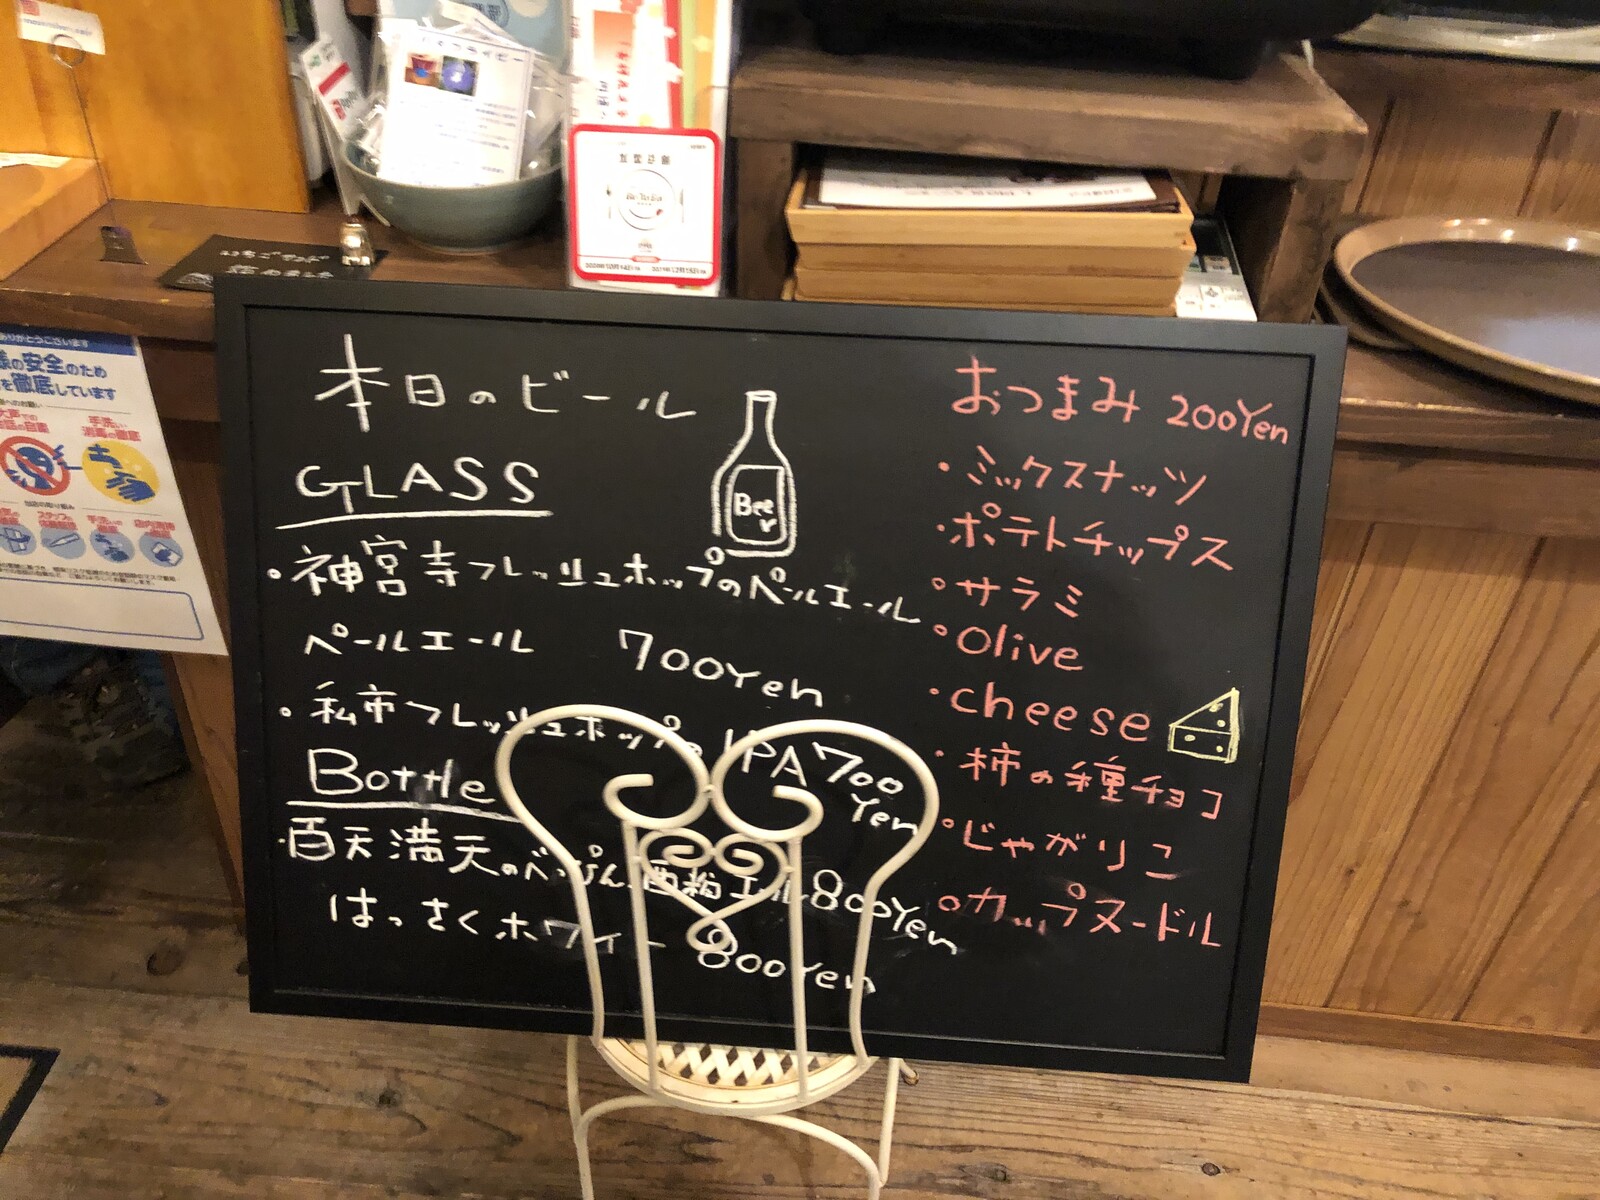 本日のビール
GLASS
Beer
・神宮寺フレッシュホップのペールエール
ペールエール 700Yen
・私市フレッシュホップの IPA 700Yen
Bottle
天満天のべっぴん 酒粕エール 800Yen
はっさくホワイー 800Yen
おつまみ 200Yen
・ミックスナッツ
・ポテトチップス
・サラミ
・Olive
・cheese
・柿の種チョコ
・じゃがりこ
・カップヌードル
ありがとうございます
の安全のため
を徹底しています
手洗い
消毒の徹底